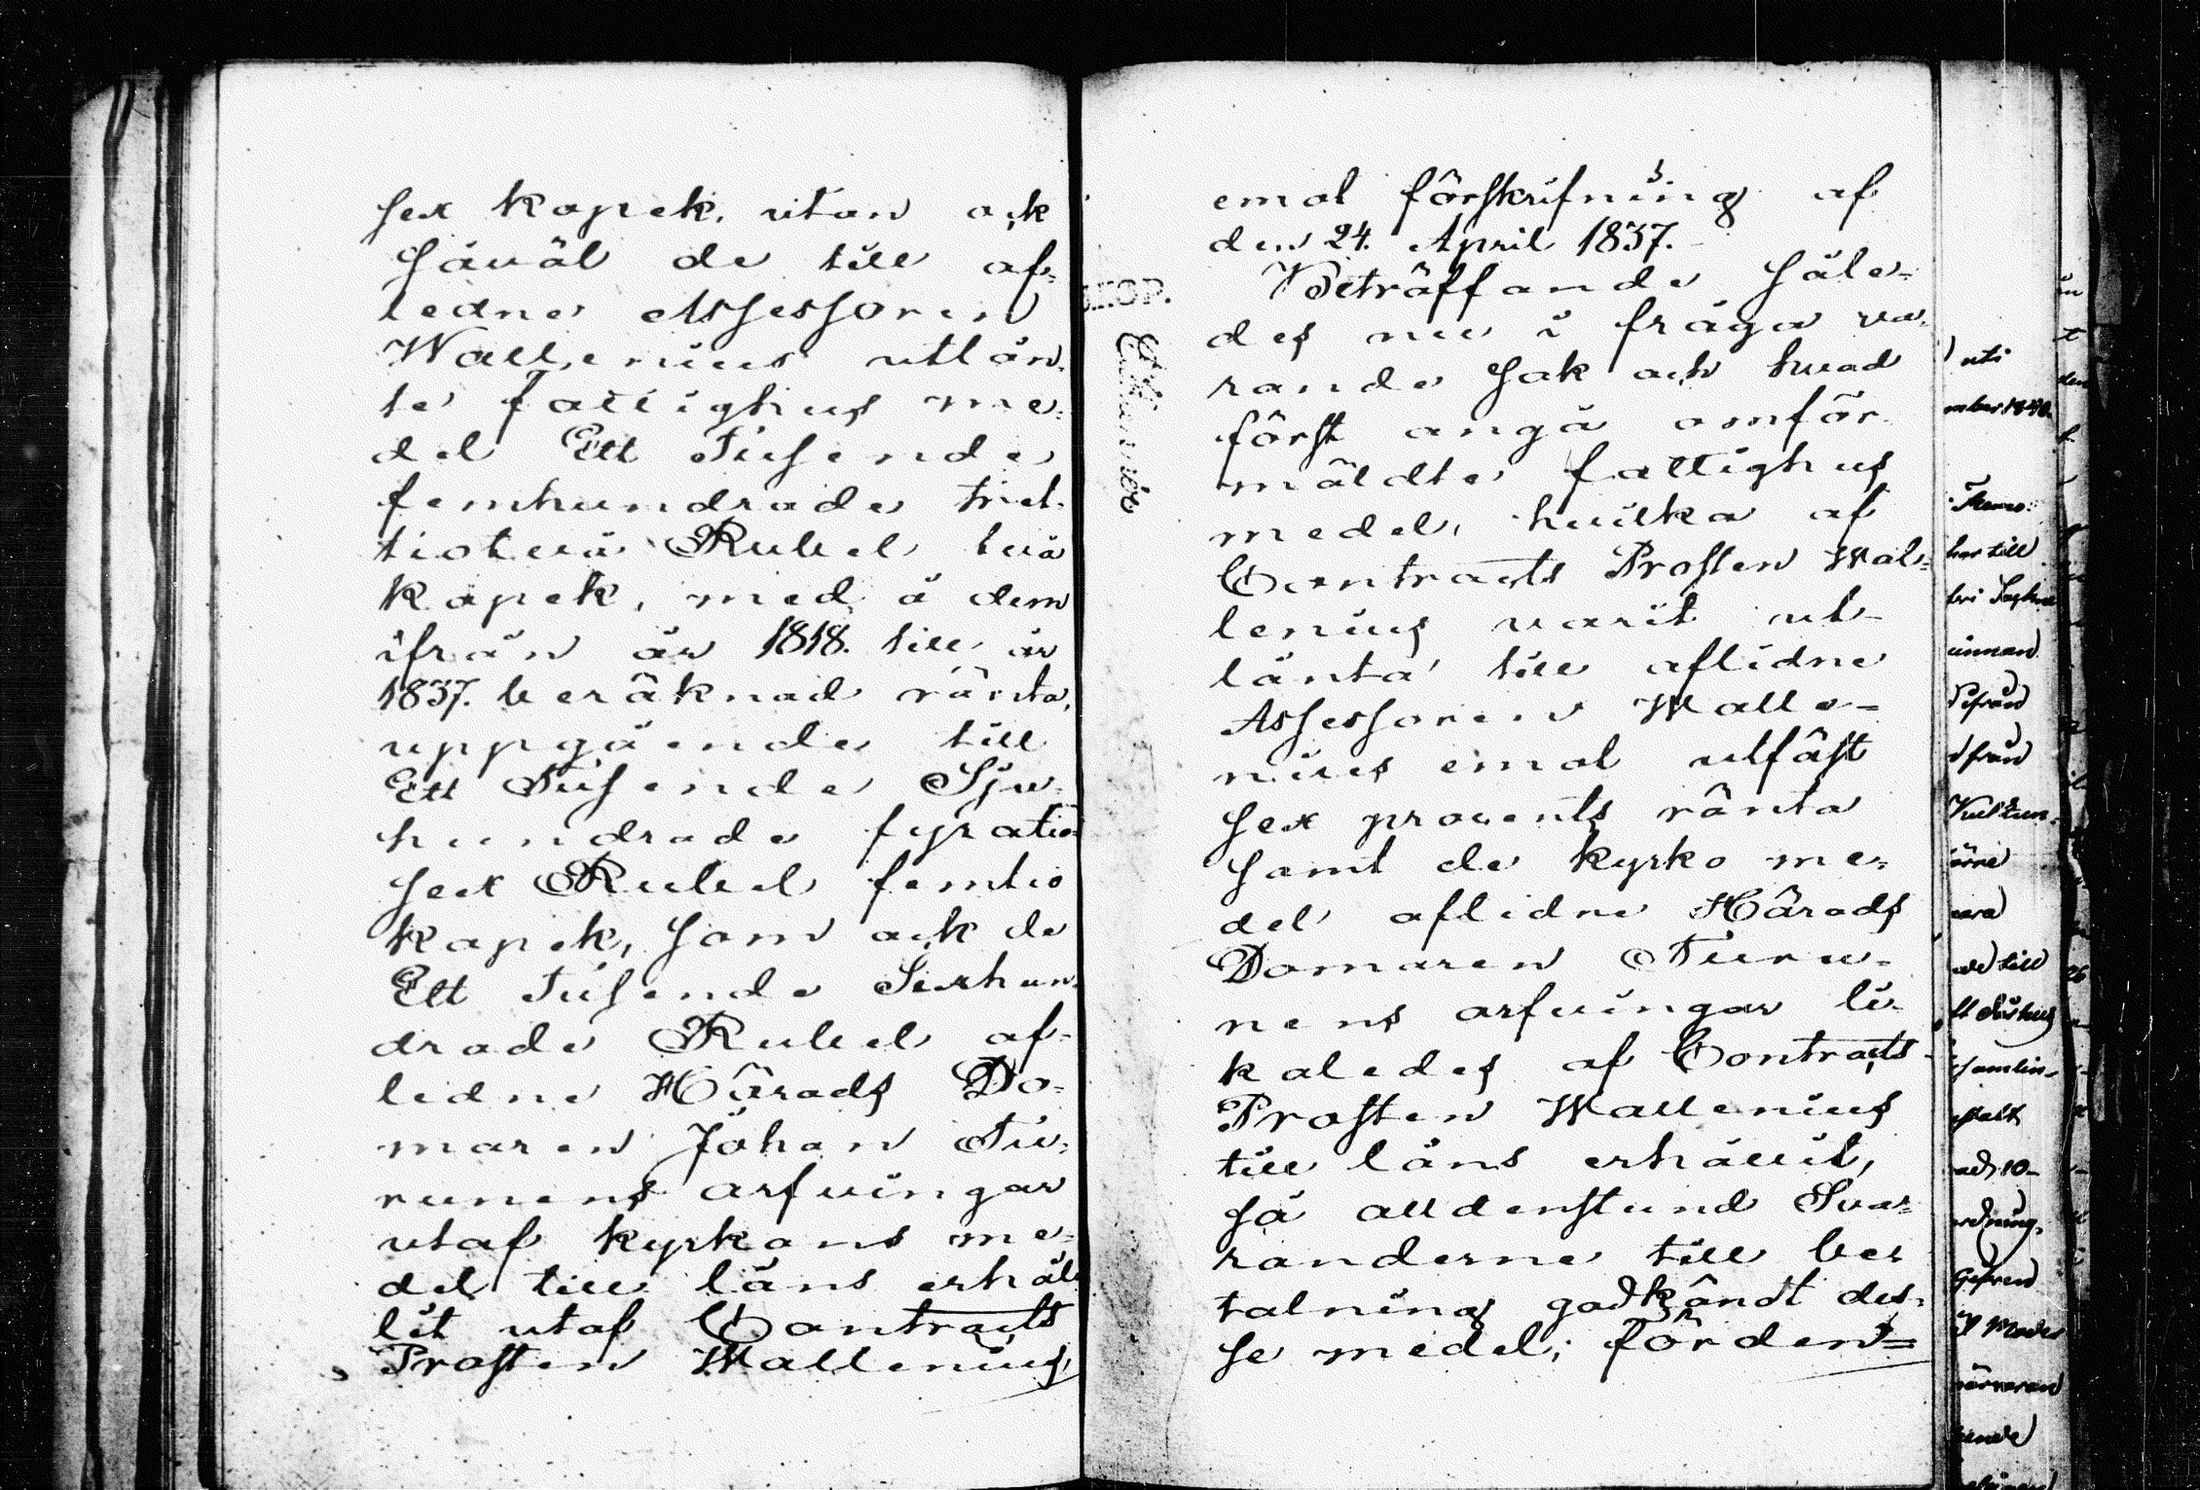 sex kopek, utan ock
såväl de till af-
ledne Assessoren
Wallenius utlän-
te fattighus me-
del Ett Tusende
femhundrade tret-
tiotvå Rubel två
kopek, med å dem
ifrån år 1818. till år
1837. beräknad ränta,
uppgående till
Ett Tusende Sju-
hundrade fyratio-
sex Rubel femtio
kopek, som ock de
Ett Tusende Sexhun-
drade Rubel af-
ledne Härads Do-
maren Johan Tu-
runens arfvingar
utaf kyrkans me-
del till låns erhål-
lit utaf Contracts
Prosten Wallenius,
emot förskrifning af
den 24. April 1837.
Beträffande såle-
des nu i fråga va-
rande sak och hvad
först angå omför-
mäldte fattighus
medel, hvilka af
Contracts Prosten Wal-
lenius varit ut-
länta till aflidne
Assessoren Walle-
nius emot utfäst
sex procents ränta
samt de kyrko me-
del aflidne Härads
Domaren Turu-
nens arfvingar li-
kaledes af Contracts-
Prosten Wallenius
till låns erhållit,
så alldenstund Sva-
randerne till be-
talning godkändt des-
se medel; fördens-
uti
har till
innan
ifrån
ade till